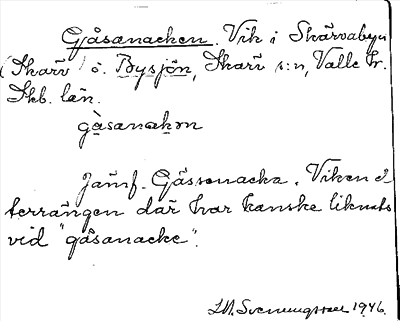 Gåsanacken. Vik i Skärvabyn
(Skarv) ö. Bysjön, Skarv s:n, Valle hr.
Skb. län.
gåsanakən
Jämf. Gåssenacka. Viken o
terrängen där har kanske liknats
vid "gåsanacke".
I.M. Svenungsson 1946.